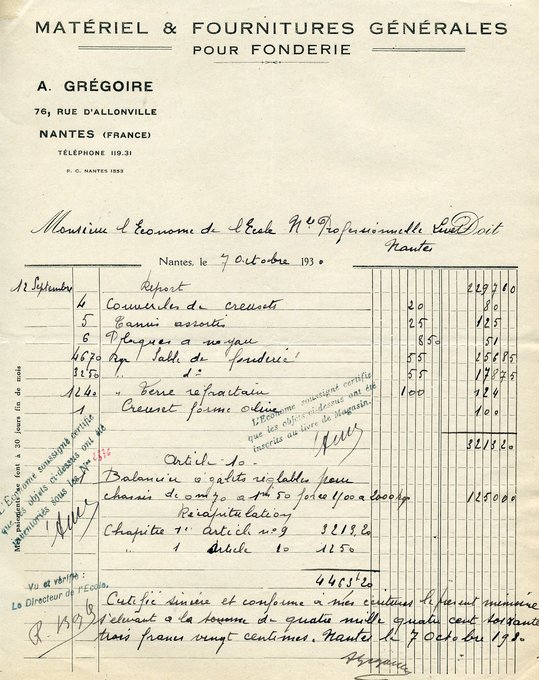 MATÉRIEL & FOURNITURES GÉNÉRALES
POUR FONDERIE
A. GRÉGOIRE
76, RUE D'ALLONVILLE
NANTES (FRANCE)
TÉLÉPHONE 119.31
R. C. NANTES 1853
Monsieur l'Econome de l'Ecole Nle Professionnelle Livet Doit
Nantes
Nantes, le 7 Octobre 1930
12 Septembre Report 2297 10
4 Couvercles de creusets 20 80
5 Tamis assortis 25 125
6 Plaques a noyau 8 50 51
4670 Kgr Sable de fonderie 55 256 85
3250 " do 55 178 75
1240 " Terre refractair 100 124
1 Creuset forme olive 100
L'Econome soussigné certifie
que les objets ci-dessus ont été
inscrits au livre de Magasin.
3213 20
Article 10
1 Balancier a galets réglables pour
chassis de 0m70 a 1m50 force 1400 a 2000 kgs 1250 00
Récapitulation
Chapitre 1er article no 9 3213,20
" 1 article 10 1250
4463f20
Certifié sincère et conforme à mes écritures le présent mémoire
s'élevant a la somme de quatre mille quatre cent soixante
trois francs vingt centimes. Nantes le 7 octobre 1930
Mes paiements se font à 30 jours fin de mois
L'Econome soussigné certifie
que les objets ci-dessus ont été
inventoriés sous les Nos
Vu et vérifié :
Le Directeur de l'Ecole.